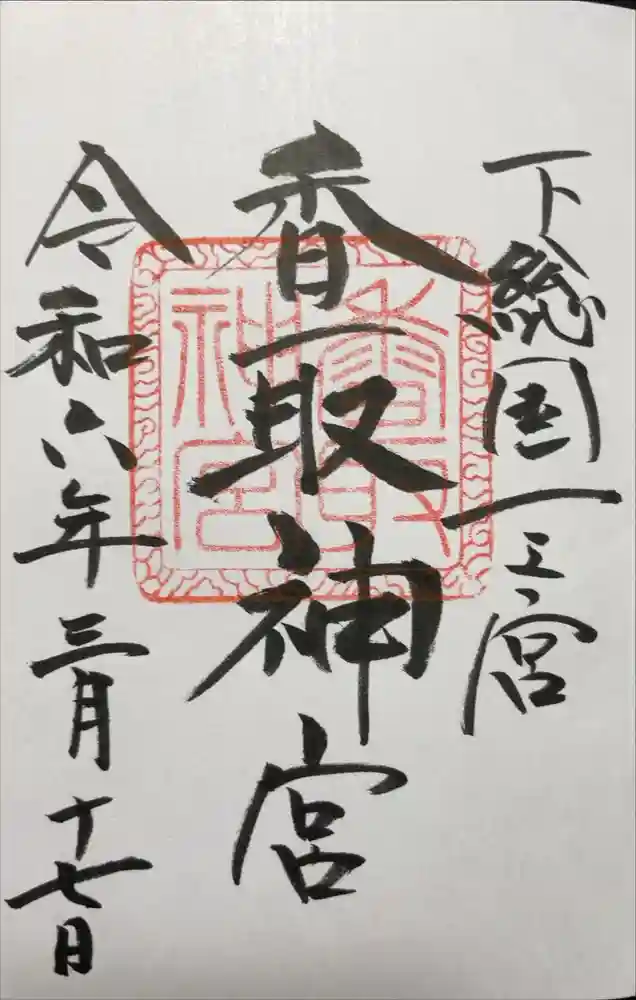 下総国一之宮
香取神宮
香取神宮
令和六年三月十七日